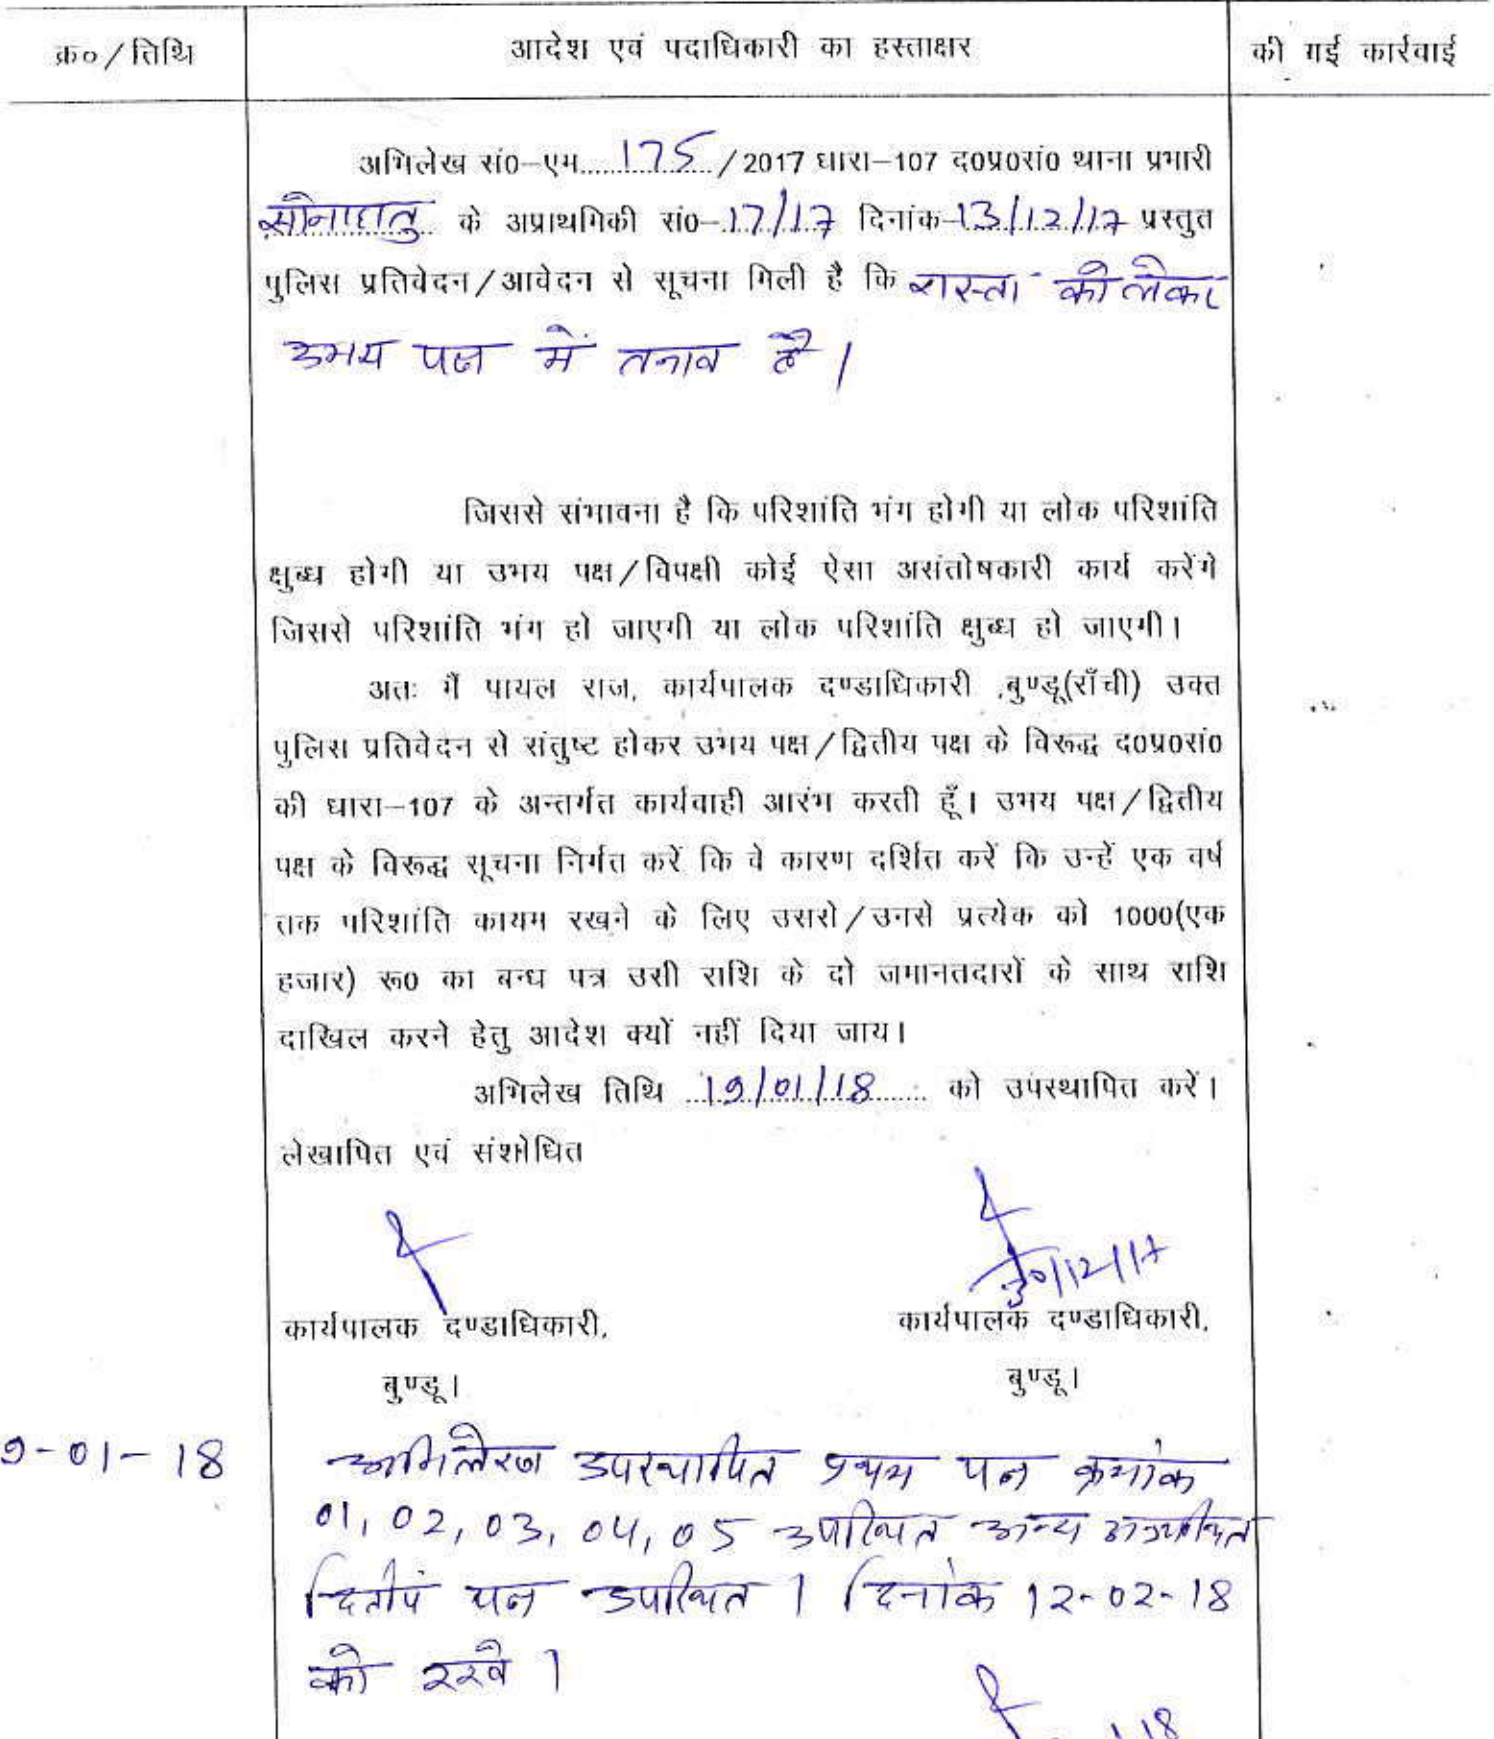 क्र०/तिथि
आदेश एवं पदाधिकारी का हस्ताक्षर
की गई कार्रवाई
अभिलेख सं०–एम......175..../2017 धारा–107 द०प्र०सं० थाना प्रभारी
सोनाहातु के अप्राथमिकी सं०–17/17 दिनांक–13/12/17 प्रस्तुत
पुलिस प्रतिवेदन/आवेदन से सूचना मिली है कि रास्ता को लेकर
उभय पक्ष में तनाव है।
जिससे संभावना है कि परिशांति भंग होगी या लोक परिशांति
क्षुब्ध होगी या उभय पक्ष/विपक्षी कोई ऐसा असंतोषकारी कार्य करेंगे
जिससे परिशांति भंग हो जाएगी या लोक परिशांति क्षुब्ध हो जाएगी।
अतः मैं पायल राज, कार्यपालक दण्डाधिकारी ,बुण्डू(राँची) उक्त
पुलिस प्रतिवेदन से संतुष्ट होकर उभय पक्ष/द्वितीय पक्ष के विरूद्ध द०प्र०सं०
की धारा–107 के अन्तर्गत कार्यवाही आरंभ करती हूँ। उभय पक्ष/द्वितीय
पक्ष के विरूद्ध सूचना निर्गत करें कि वे कारण दर्शित करें कि उन्हें एक वर्ष
तक परिशांति कायम रखने के लिए उससे/उनसे प्रत्येक को 1000(एक
हजार) रू० का बन्ध पत्र उसी राशि के दो जमानतदारों के साथ राशि
दाखिल करने हेतु आदेश क्यों नहीं दिया जाय।
अभिलेख तिथि ...19/01/18....... को उपस्थापित करें।
लेखापित एवं संशोधित
30/12/17
कार्यपालक दण्डाधिकारी,
कार्यपालक दण्डाधिकारी,
बुण्डू।
बुण्डू।
9-01-18
अभिलेख उपस्थापित प्रथम पक्ष क्रमांक
01, 02, 03, 04, 05 उपस्थित अन्य अनुपस्थित
द्वितीय पक्ष उपस्थित । दिनांक 12-02-18
को रखे ।